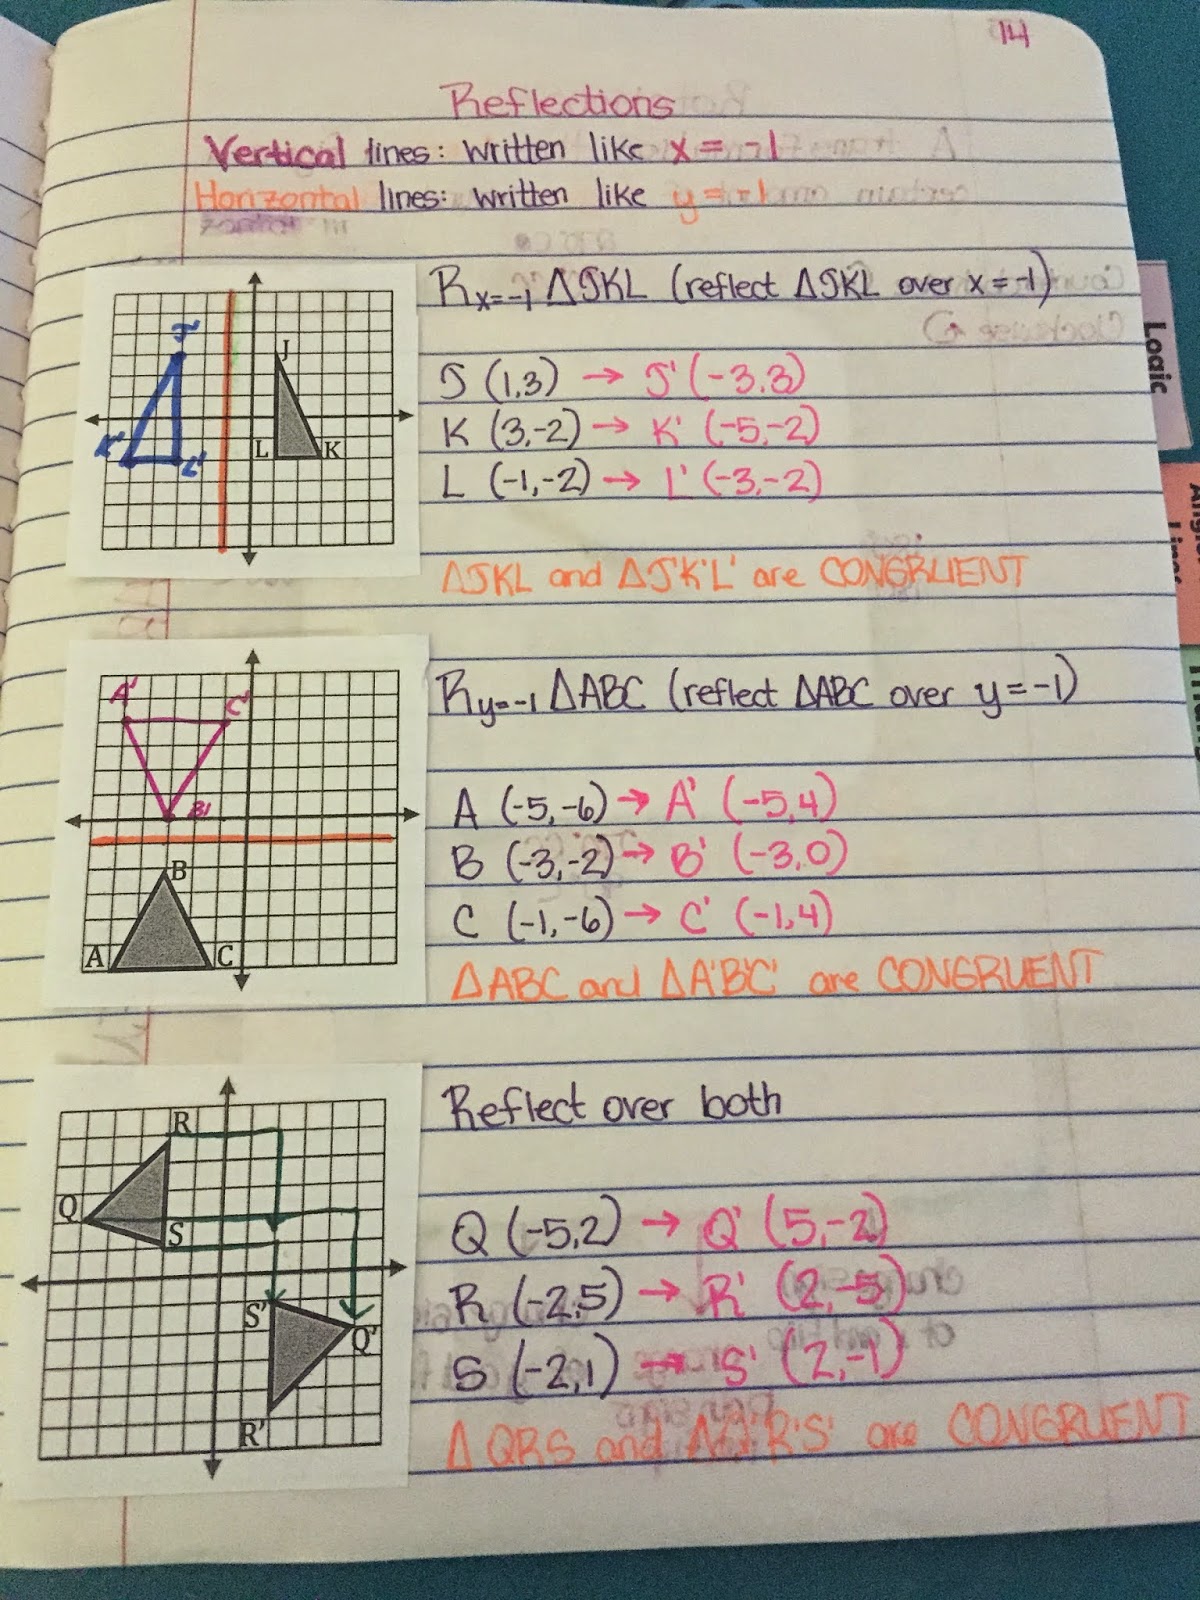 14
Reflections
Vertical lines: written like x = -1
Horizontal lines: written like y = -1
zontal
R x=-1 ΔJKL (reflect ΔJKL over x = -1)
J (1,3) → J' (-3,3)
K (3,-2) → K' (-5,-2)
L (-1,-2) → L' (-3,-2)
ΔJKL and ΔJ'K'L' are CONGRUENT
J'
J
K'
L'
L
K
Logic
R y=-1 ΔABC (reflect ΔABC over y = -1)
A (-5,-6) → A' (-5,4)
B (-3,-2) → B' (-3,0)
C (-1,-6) → C' (-1,4)
ΔABC and ΔA'B'C' are CONGRUENT
A'
C'
B'
B
A
C
Reflect over both
Q (-5,2) → Q' (5,-2)
R (-2,5) → R' (2,-5)
S (-2,1) → S' (2,-1)
ΔQRS and ΔQ'R'S' are CONGRUENT
R
Q
S
S'
Q'
R'